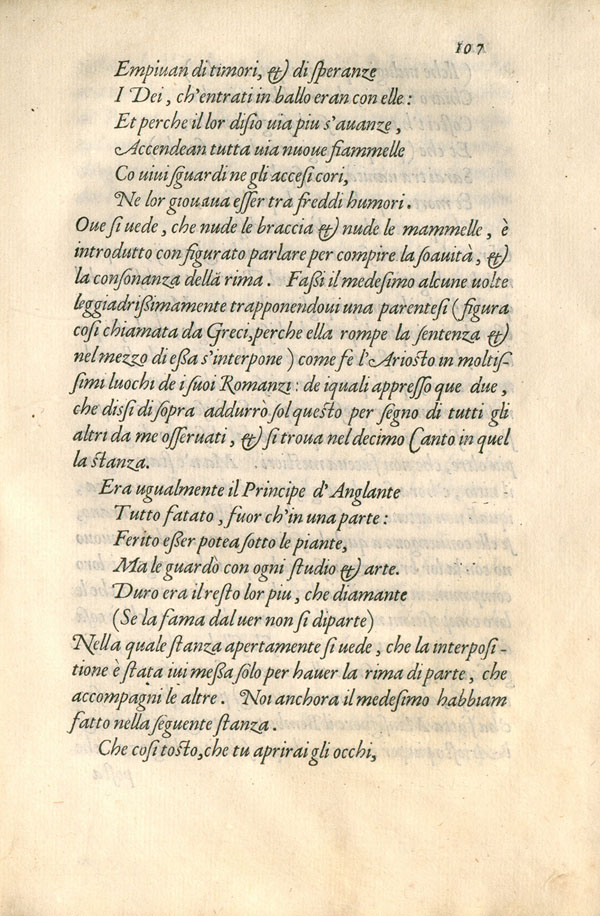 107
Empiuan di timori, & di speranze
I Dei, ch'entrati in ballo eran con elle:
Et perche il lor disio uia piu s'auanze,
Accendean tutta uia nuoue fiammelle
Co uiui sguardi ne gli accesi cori,
Ne lor giouaua esser tra freddi humori.
Oue si uede, che nude le braccia & nude le mammelle, è
introdutto con figurato parlare per compire la soauità, &
la consonanza della rima. Fassi il medesimo alcune uolte
leggiadrissimamente trapponendoui una parentesi (figura
cosi chiamata da Greci, perche ella rompe la sentenza &
nel mezzo di essa s'interpone) come fè l'Ariosto in moltis-
simi luochi de i suoi Romanzi: de iquali appresso que due,
che dissi di sopra addurrò sol questo per segno di tutti gli
altri da me osseruati, & si troua nel decimo Canto in quel
la stanza.
Era ugualmente il Principe d'Anglante
Tutto fatato, fuor ch'in una parte:
Ferito esser potea sotto le piante,
Ma le guardò con ogni studio & arte.
Duro era il resto lor piu, che diamante
(Se la fama dal uer non si diparte)
Nella quale stanza apertamente si uede, che la interposi-
tione è stata iui messa solo per hauer la rima di parte, che
accompagni le altre. Noi anchora il medesimo habbiam
fatto nella seguente stanza.
Che cosi tosto, che tu aprirai gli occhi,